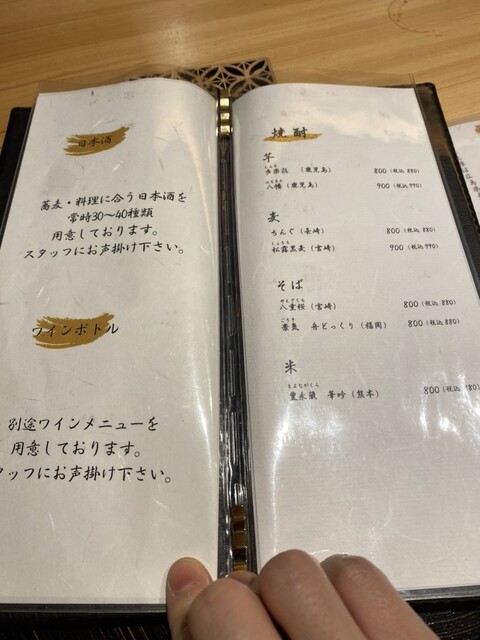 日本酒
蕎麦・料理に合う日本酒を
常時30〜40種類
用意しております。
スタッフにお声掛け下さい。
ワインボトル
別途ワインメニューを
用意しております。
タッフにお声掛け下さい。
焼酎
芋
多楽荘 (鹿児島) 800 (税込 880)
八幡 (鹿児島) 900 (税込 990)
麦
ちんぐ (長崎) 800 (税込 880)
しょうろ
松露黒麦 (宮崎) 900 (税込 990)
そば
やえざくら
八重桜 (宮崎) 800 (税込 880)
ごうき
豪気 舟どっくり (福岡) 800 (税込 880)
米
とよながくら
豊永蔵 華吟 (熊本) 800 (税込 880)